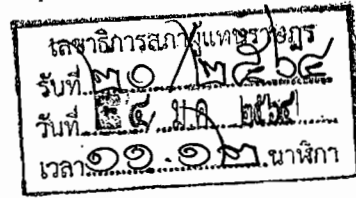 เลขาธิการสภาผู้แทนราษฎร
รับที่ ๒๑ / ๒๕๖๔
วันที่ ๔ ม.ค. ๒๕๖๔
เวลา ๑๑.๑๓ นาฬิกา